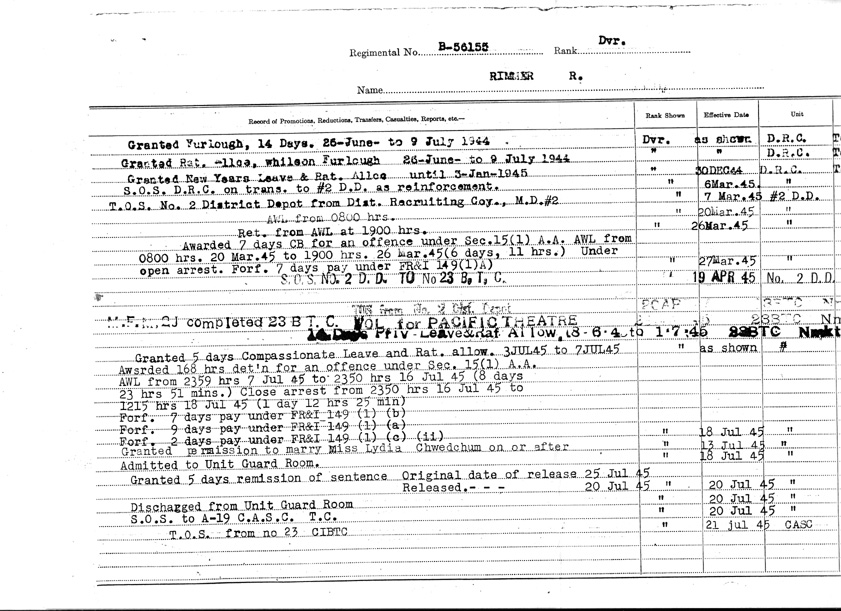 Regimental No. B-56155 Rank Dvr.
Name R.
Record of Promotions, Reductions, Transfers, Casualties, Reports, etc.— Rank Shown Effective Date Unit
Granted Furlough, 14 Days. 26-June- to 9 July 1944 . Dvr. as shown D.R.C.
Granted Rat. whilson Furlough 26-June- to 9 July 1944 " " D.R.C.
Granted New Years Leave & Rat. Allce until 3-Jan-1945 " 30DEC44 D.R.C.
S.O.S. D.R.C. on trans. to #2 D.D. as reinforcement. " 6Mar.45. "
T.O.S. No. 2 District Depot from Dist. Recruiting Coy., M.D.#2 " 7 Mar.45 #2 D.D.
AWL from 0800 hrs. " 20Mar.45 "
Ret. from AWL at 1900 hrs. " 26Mar.45 "
Awarded 7 days CB for an offence under Sec.15(1) A.A. AWL from
0800 hrs. 20 Mar.45 to 1900 hrs. 26 Mar.45(6 days, 11 hrs.) Under
open arrest. Forf. 7 days pay under FR&I 149(1)A) " 27Mar.45 "
S.O.S. NO. 2 D.D. TO No 23 B.T.C. " 19 APR 45 No. 2 D.D.
completed 23 B T C. VOL. for PACIFIC THEATRE 23BTC
14 Days Priv-Leave&Rat Allow. 18-6-4 to 1·7·45 23BTC
Granted 5 days Compassionate Leave and Rat. allow. 3JUL45 to 7JUL45 " as shown #
Awsrded 168 hrs det'n for an offence under Sec. 15(1) A.A.
AWL from 2359 hrs 7 Jul 45 to 2350 hrs 16 Jul 45 (8 days
23 hrs 51 mins.) Close arrest from 2350 hrs 16 Jul 45 to
1215 hrs 18 Jul 45 (1 day 12 hrs 25 min)
Forf. 7 days pay under FR&I 149 (1) (b)
Forf. 9 days pay under FR&I 149 (1) (a)
Forf. 2 days pay under FR&I 149 (1) (c) (ii) " 18 Jul 45 "
Granted permission to marry Miss Lydia Chwedchum on or after " 13 Jul 45 "
Admitted to Unit Guard Room. " 18 Jul 45 "
Granted 5 days remission of sentence Original date of release 25 Jul 45
Released.- - - 20 Jul 45 " 20 Jul 45 "
Discharged from Unit Guard Room " 20 Jul 45 "
S.O.S. to A-19 C.A.S.C. T.C. " 20 Jul 45 "
T.O.S. from no 23 CIBTC " 21 jul 45 CASC